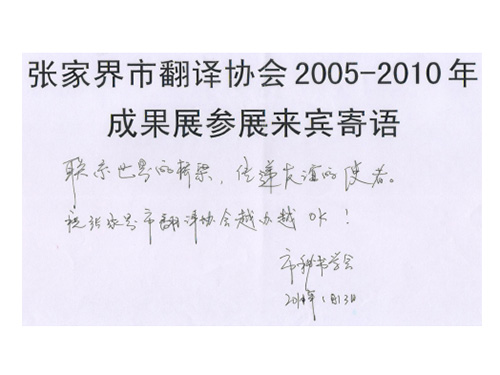 张家界市翻译协会2005-2010年
成果展参展来宾寄语
联系世界的桥梁，传递友谊的使者。
祝张家界市翻译协会越办越OK！
市科书学会
1月13日